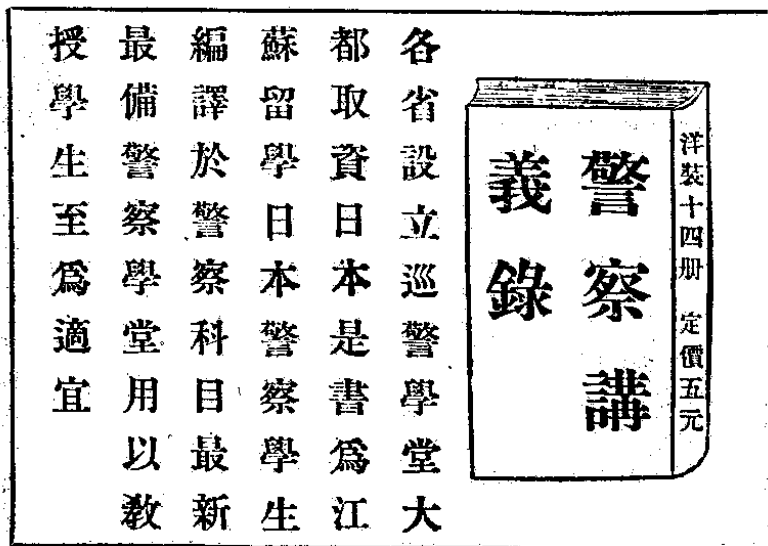 洋裝十四册 定價五元
警察講
義錄
各省設立巡警學堂大
都取資日本是書爲江
蘇留學日本警察學生
編譯於警察科目最新
最備警察學堂用以敎
授學生至爲適宜